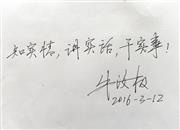 知实情，讲实话，干实事！
牛汝极
2016-3-12